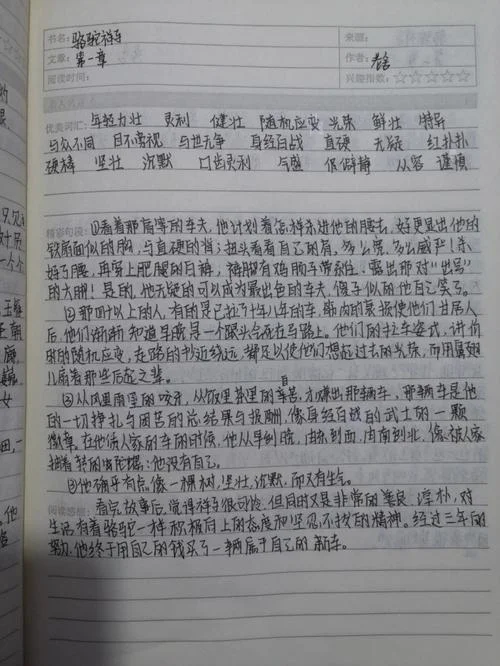 书名: 骆驼祥子 来源:
文章: 第一章 作者: 老舍
阅读时间: 兴趣指数: ☆☆☆☆☆
优美词汇: 年轻力壮 灵利 健壮 随机应变 光荣 鲜壮 特异
与众不同 目不旁视 与世无争 身经百战 直硬 无疑 红扑扑
硬棒 坚壮 沉默 口齿灵利 气盛 僻静 从容 谨慎
精彩句段: ①看着那高等的车夫,他计划着怎样杀进他的腰去,好更显出他的
铁扇面似的胸,与直硬的背;扭头看看自己的肩,多么宽,多么威严!杀
好了腰,再穿上肥腿的白裤,裤脚用鸡肠子带系住,露出那对“出号”
的大脚!是的,他无疑的可以成为最出色的车夫,傻子似的他自己笑了。
②那四十以上的人,有的是已拉了十年八年的车,筋肉的衰损使他们甘居人
后,他们渐渐知道早晚是一个跟头会死在马路上。他们的拉车姿式,讲价
时的随机应变,走路的抄近绕远,都足以使他们想起过去的光荣,而用鼻翅
儿扇着那些后起之辈。
③从风里雨里的咬牙,从饭里茶里的自苦,才赚出那辆车,那辆车是他
的一切挣扎与困苦的总结果与报酬,像身经百战的武士的一颗
徽章。在他赁人家的车的时候,他从早到晚,由东到西,由南到北,像被人家
抽着转的陀螺;他没有自己。
③他确乎有点像一棵树,坚壮,沉默,而又有生气。
阅读感想: 看完故事后,觉得祥子很可怜,但同时又是非常的善良,淳朴,对
生活有着骆驼一样积极向上的态度和坚忍不拔的精神。经过三年的
努力,他终于用自己的钱买了一辆属于自己的新车。